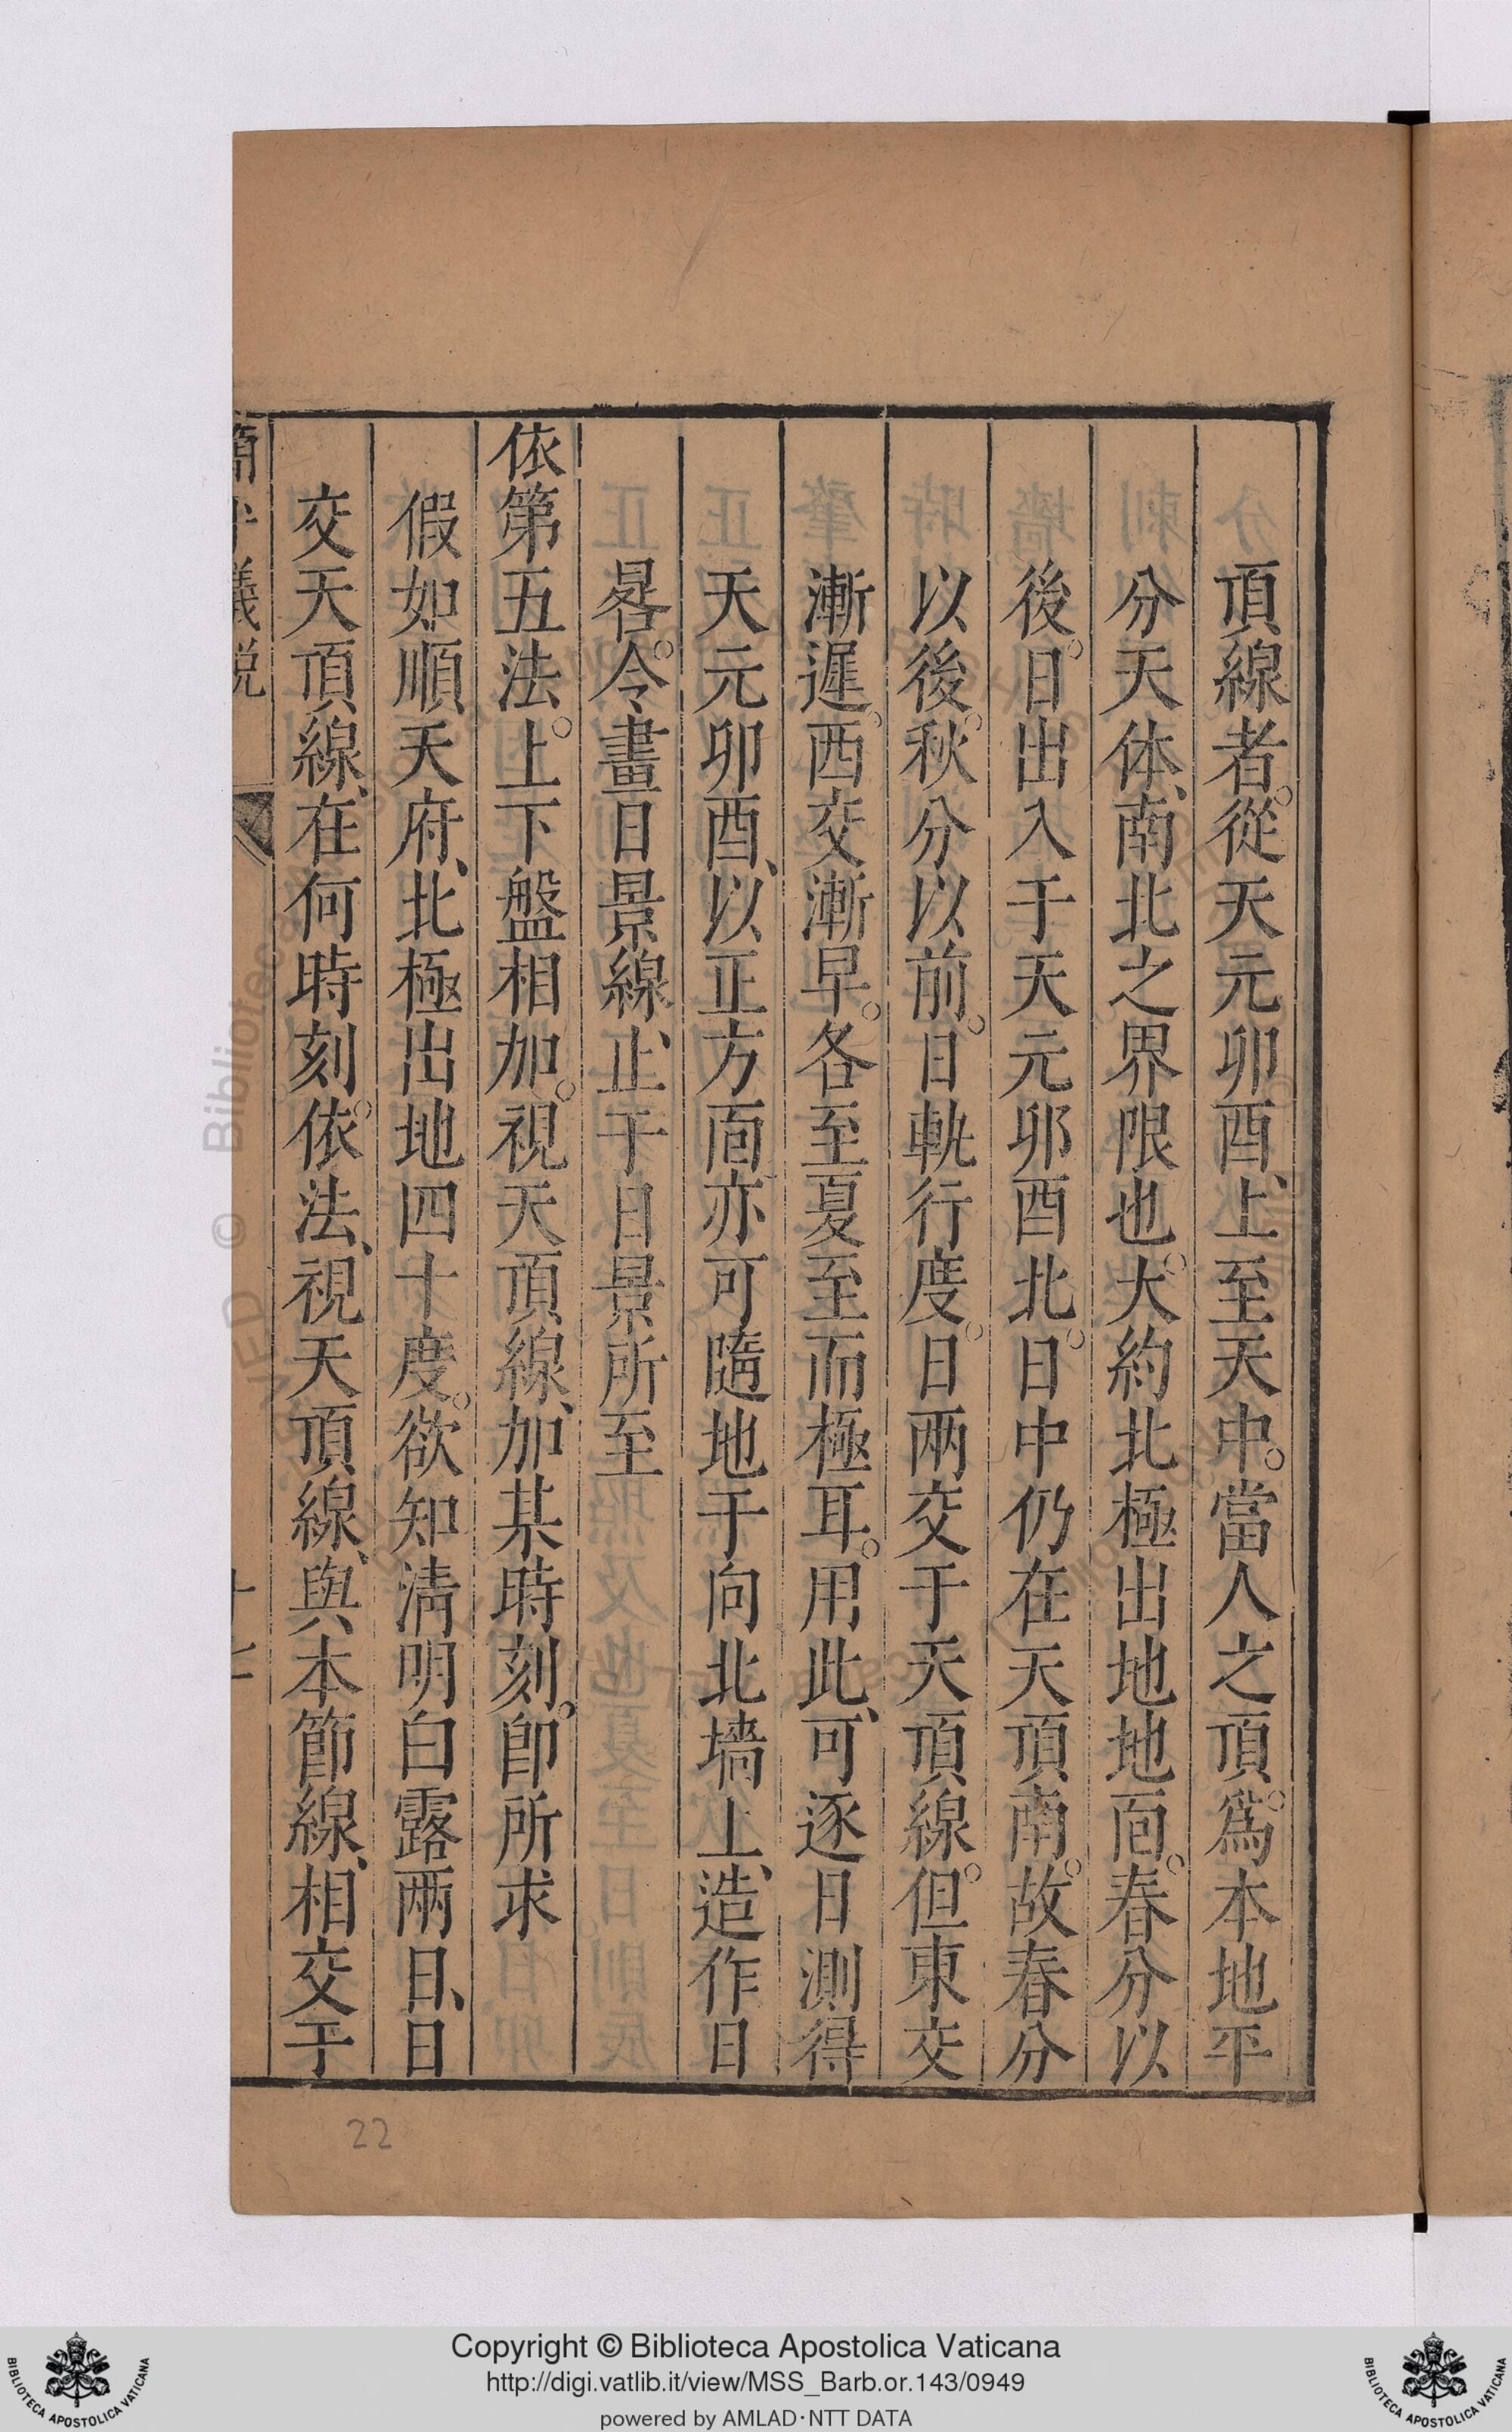 頂線者。從天元卯酉、上至天中。當人之頂。爲本地平
分天体、南北之界限也。大約北極出地地面。春分以
後。日出入于天元卯酉北。日中仍在天頂南。故春分
以後。秋分以前。日軌行度。日兩交于天頂線。但東交
漸遲。西交漸早。各至夏至而極耳。用此、可逐日測得
天元卯酉、以正方面亦可隨地于向北墻上、造作日
晷。令畫日景線、止于日景所至
依第五法。上下盤相加。視天頂線、加某時刻。卽所求
假如順天府、北極出地四十度。欲知淸明白露兩日、日
交天頂線、在何時刻。依法、視天頂線、與本節線、相交于
簡平儀説
十七
22
Copyright © Biblioteca Apostolica Vaticana
http://digi.vatlib.it/view/MSS_Barb.or.143/0949
powered by AMLAD·NTT DATA
BIBLIOTECA APOSTOLICA VATICANA
BIBLIOTECA APOSTOLICA VATICANA